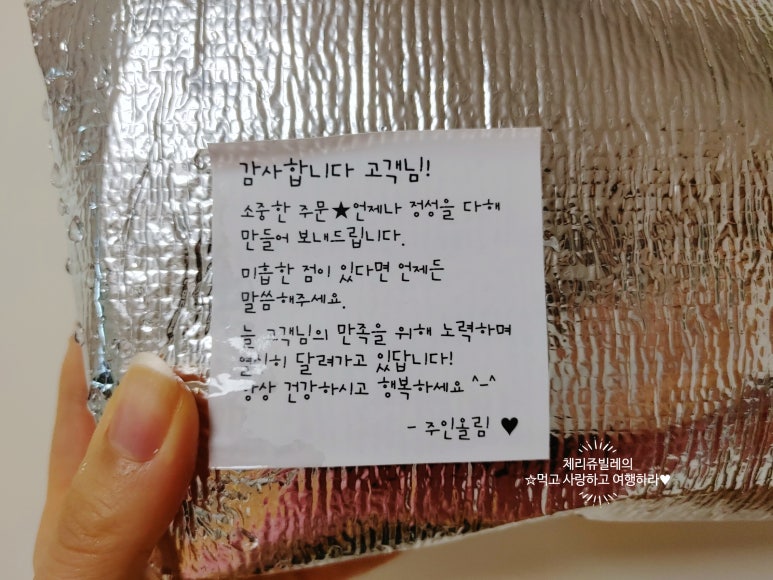 감사합니다 고객님!
소중한 주문★언제나 정성을 다해
만들어 보내드립니다.
미흡한 점이 있다면 언제든
말씀해주세요.
늘 고객님의 만족을 위해 노력하며
열심히 달려가고 있답니다!
항상 건강하시고 행복하세요 ^-^
- 주인올림 ♥
체리쥬빌레의
☆먹고 사랑하고 여행하라♥